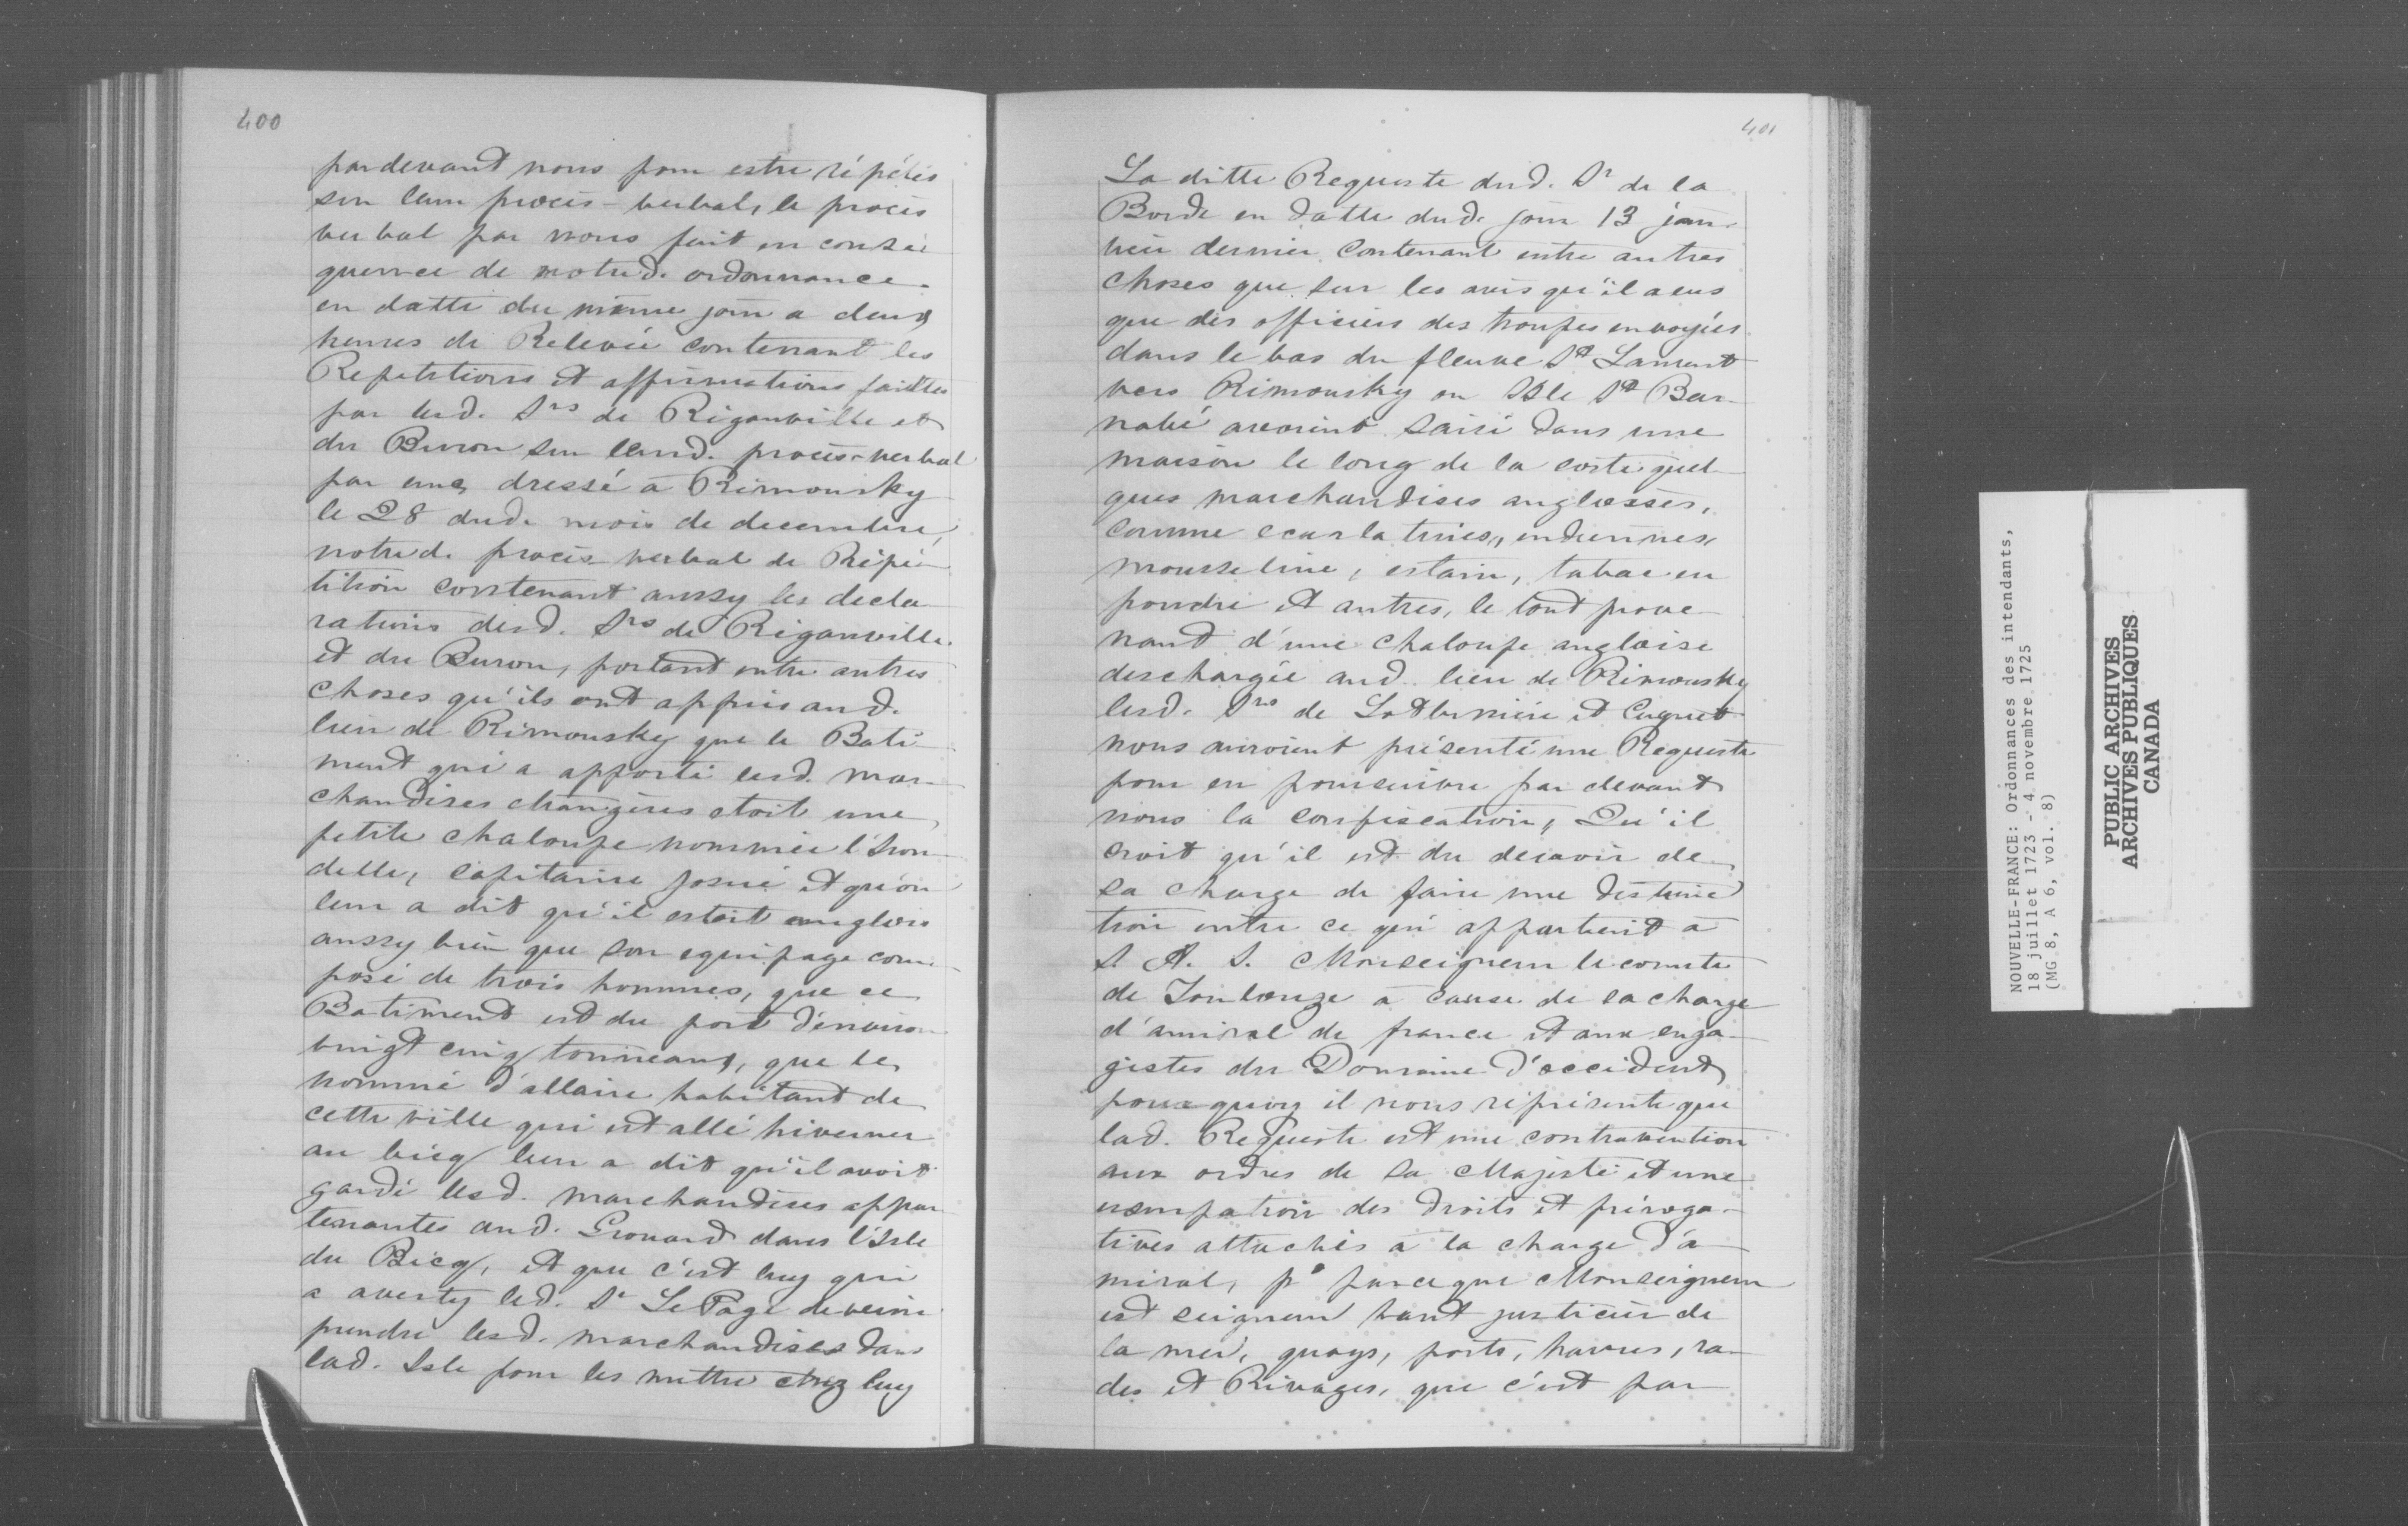 400
pardevant nous pour estre répétés
sur leur procès-verbal, le procès
verbal par nous fait en consé
quence de notred. ordonnance
en datte du même jour a deux
heures de Relevée contenant les
Repetitions et affirmations faittes
par lesd. Srs de Riganville et
du Buron sur leurd. procès-verbal
par eux dressé à Rimousky
le 28 dud. mois de decembre,
notred. procès verbal de Répé
tition contenant aussy les decla
rations desd. Srs de Riganville
et du Buron, portant entre autres
choses qu'ils ont appris aud.
lieu de Rimousky que le Bati
ment qui a apporté lesd. mar
chandises étrangères etoit une
petite chaloupe nommée l'hron
delle, capitaine Josué et qu'on
leur a dit qu'il estoit anglois
aussy bien que son equipage com
posé de trois hommes, que ce
Batiment est du port d'environ
vingt cinq tonneaux, que le
nommé d'allaire habitant de
cette ville qui est allé hiverner
au bicq leur a dit qu'il avoit
gardé lesd. marchandises appar
tenantes aud. Grouard dans l'Isle
du Bicq, et que c'est luy qui
a averty led. Sr Le Page de venir
prendre lesd. marchandises dans
lad. Isle pour les mettre chez luy
401
La ditte Requeste dud. Sr de la
Borde en datte dud. jour 13 jan-
vier dernier contenant entre autres
choses que sur les avis qu'il a eus
que des officiers des troupes envoyées
dans le bas du fleuve St Laurent
vers Rimousky ou Isle St Bar-
nabé avoient saisi dans une
maison le long de la coste quel-
ques marchandises angloises,
comme ecarlatines, indiennes,
mousseline, estain, tabac en
poudre et autres, le tout prove-
nant d'une chaloupe angloise
deschargée aud. lieu de Rimousky
lesd. Srs de Lotbiniere et Cugnet
nous auroient présenté une Requeste
pour en poursuivre par devant
nous la confiscation, Qu'il
croit qu'il est du devoir de
sa charge de faire une distinc
tion entre ce qui appartient a
S. A. S. Monseigneur le comte
de Toulouze a cause de sa charge
d'amiral de france et aux enga-
gistes du Domaine d'occident
pourquoy il nous réprésente que
lad. Requeste est une contravention
aux ordres de Sa Majesté et une
usurpation des droits et préroga-
tives attachés à la charge d'a
miral, p° parceque Monseigneur
est seigneur haut justicier de
la mer, quays, ports, havres, ra-
des et Rivages, que c'est par
NOUVELLE-FRANCE: Ordonnances des intendants,
18 juillet 1723 - 4 novembre 1725
(MG 8, A 6, vol. 8)
PUBLIC ARCHIVES
ARCHIVES PUBLIQUES
CANADA